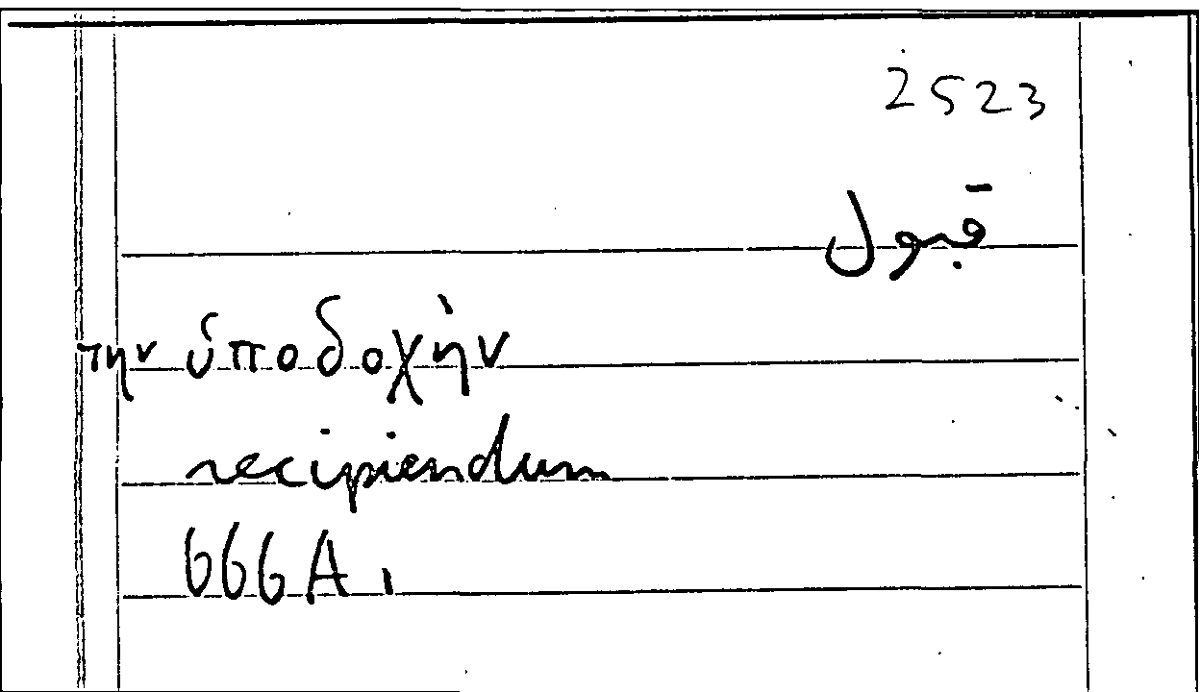 2523
قبول
την ὑποδοχὴν
recipiendum
666A1